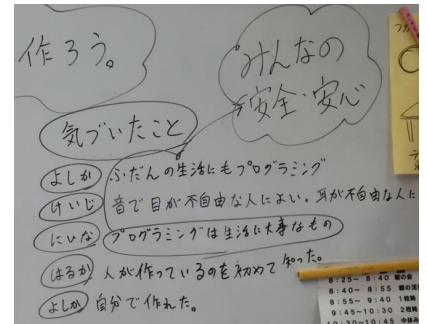 作ろう。
みんなの
安全・安心
気づいたこと
よしか ふだんの生活にもプログラミング
けいじ 音で目が不自由な人によい。耳が不自由な人に
にいな プログラミングは生活に大事なもの
はるか 人が作っているのを初めて知った。
よしか 自分で作れた。
8:25~ 8:40 朝の会
8:40~ 8:55 朝の活
8:55~ 9:40 1校時
9:45~10:30 2校時
10:30~10:45 中休み